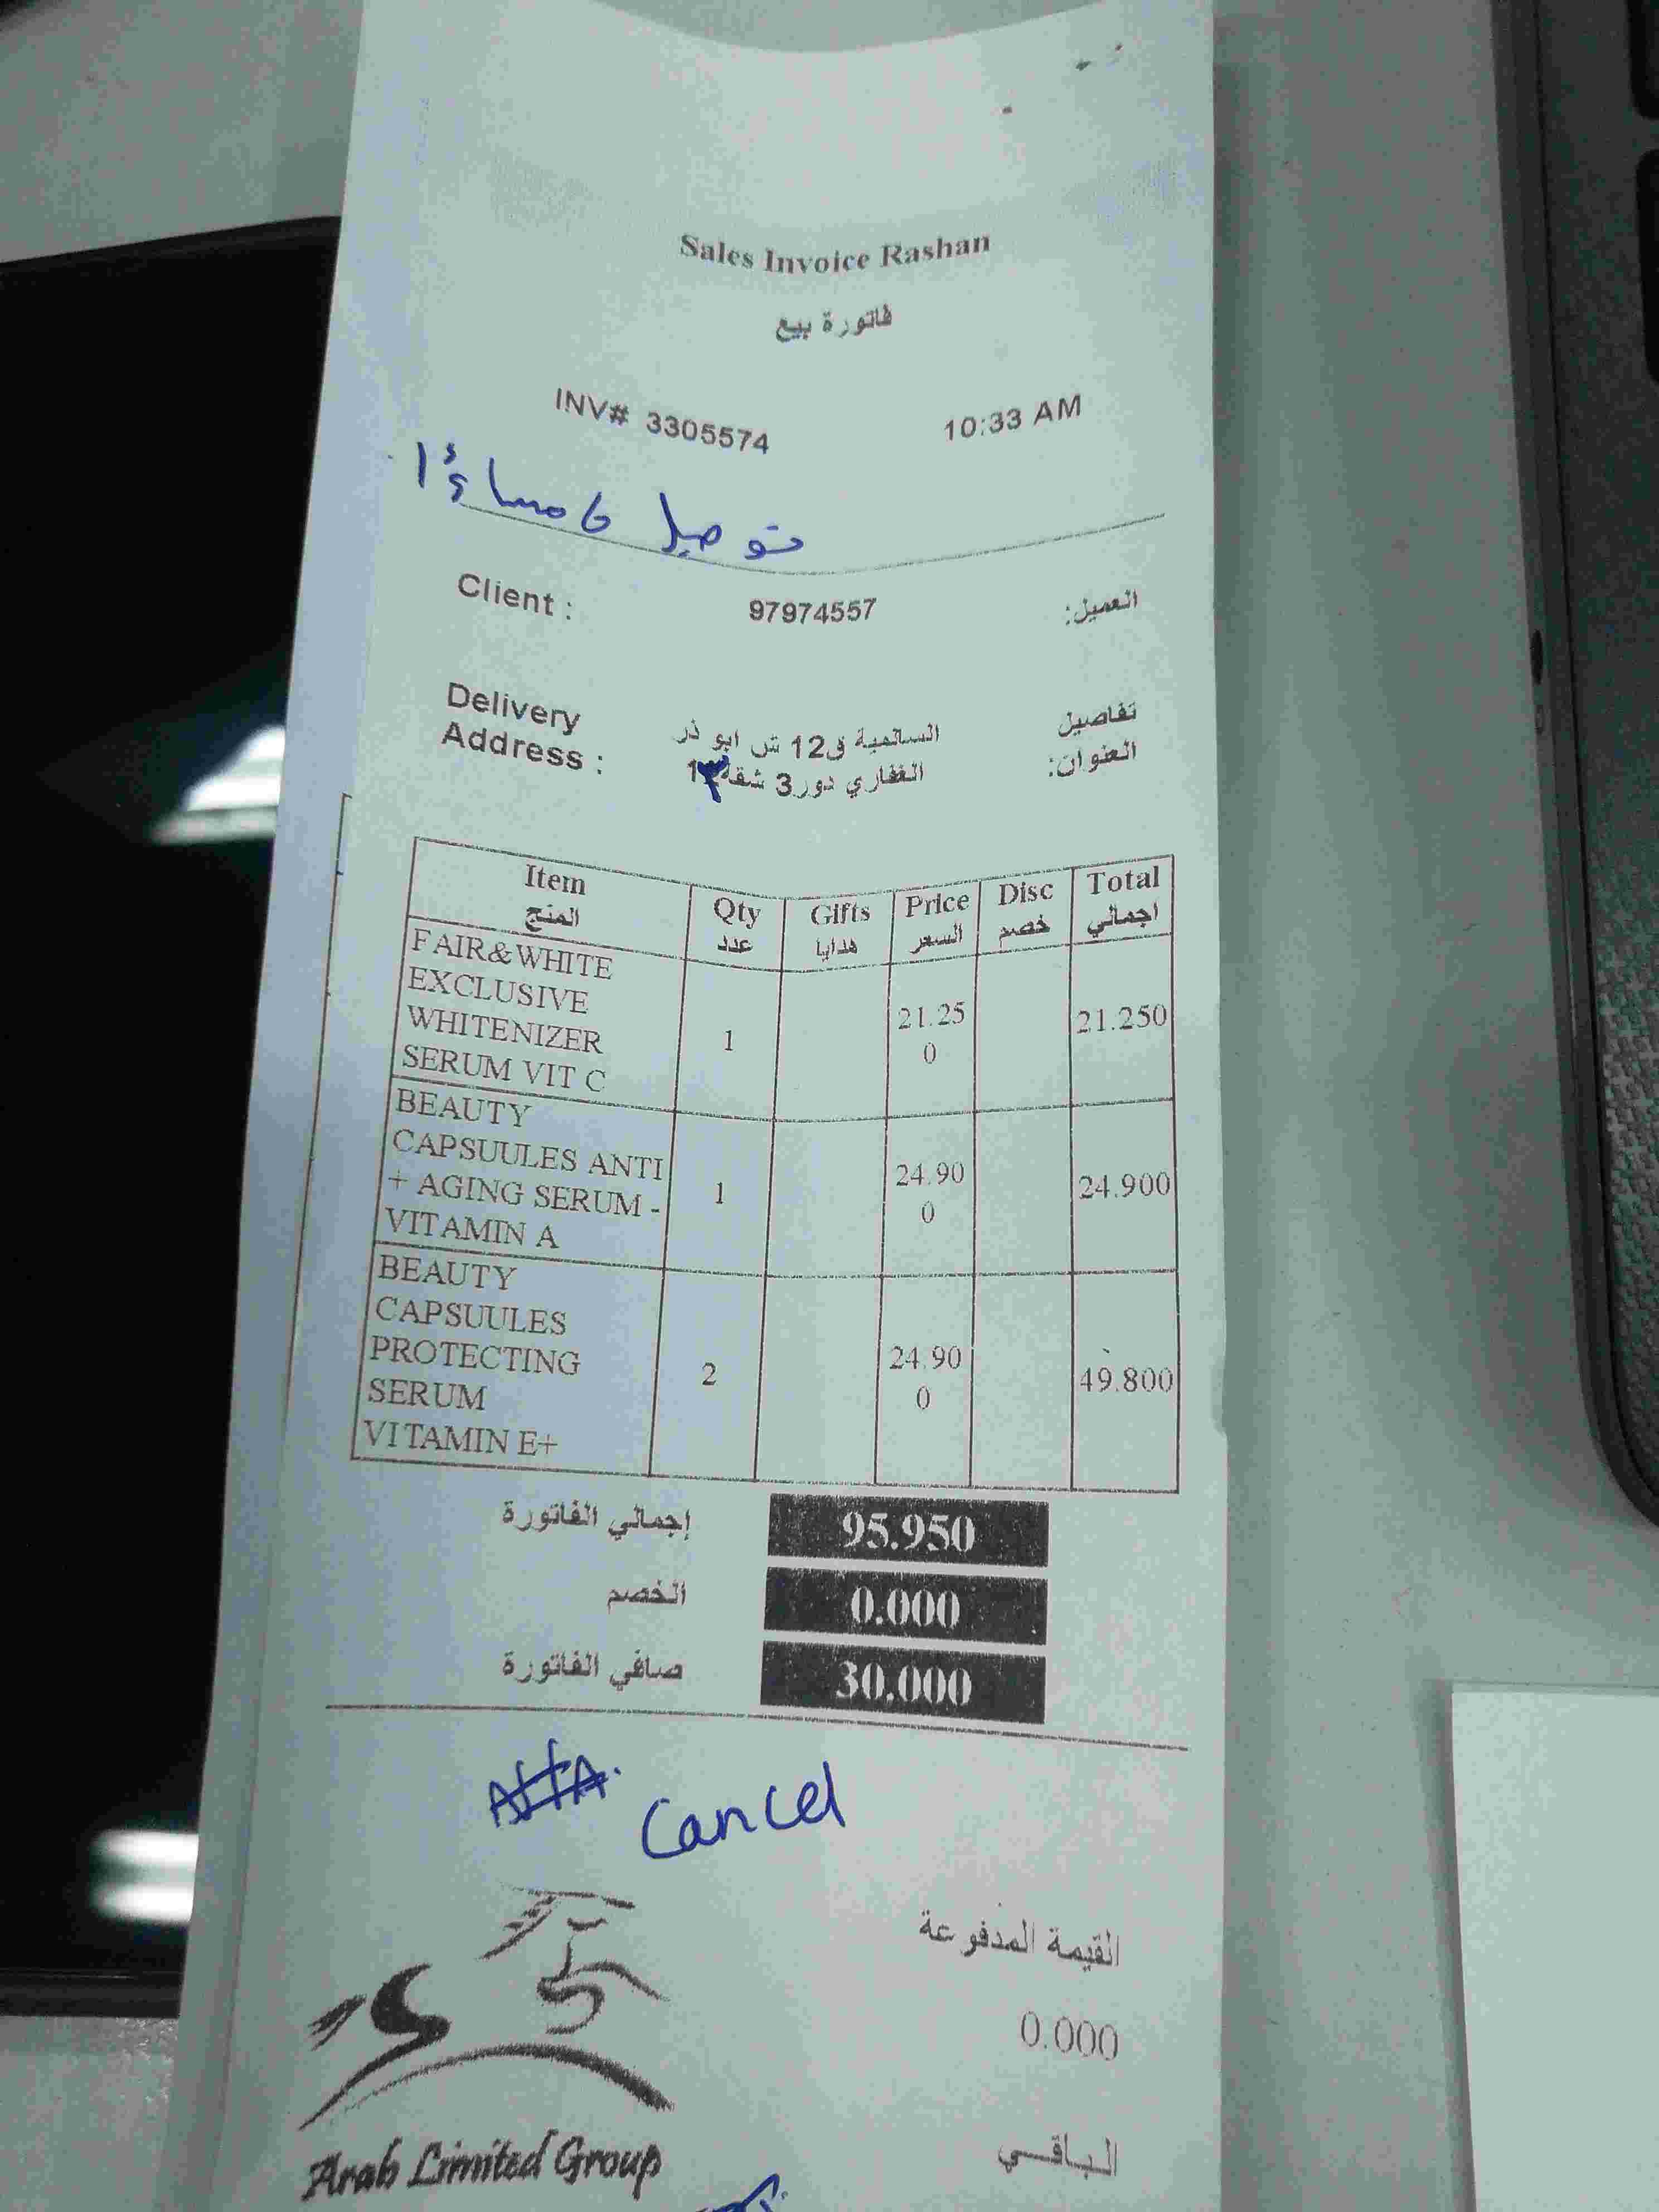 Sales Invoice Rashan
فاتورة بيع
INV# 3305574 10:33 AM
توصيل ٦ مساءً
Client : 97974557 العميل:
Delivery Address : السالمية ق12 ش ابو ذر تفاصيل العنوان:
الغفاري دور3 شقة
Item Qty Gifts Price Disc Total
المنتج عدد هدايا السعر خصم اجمالي
FAIR&WHITE
EXCLUSIVE
WHITENIZER
SERUM VIT C 1 21.250 21.250
BEAUTY
CAPSUULES ANTI
+ AGING SERUM -
VITAMIN A 1 24.900 24.900
BEAUTY
CAPSUULES
PROTECTING
SERUM
VITAMIN E+ 2 24.900 49.800
إجمالي الفاتورة 95.950
الخصم 0.000
صافي الفاتورة 30.000
Cancel
القيمة المدفوعة
0.000
الباقي
Arab Limited Group